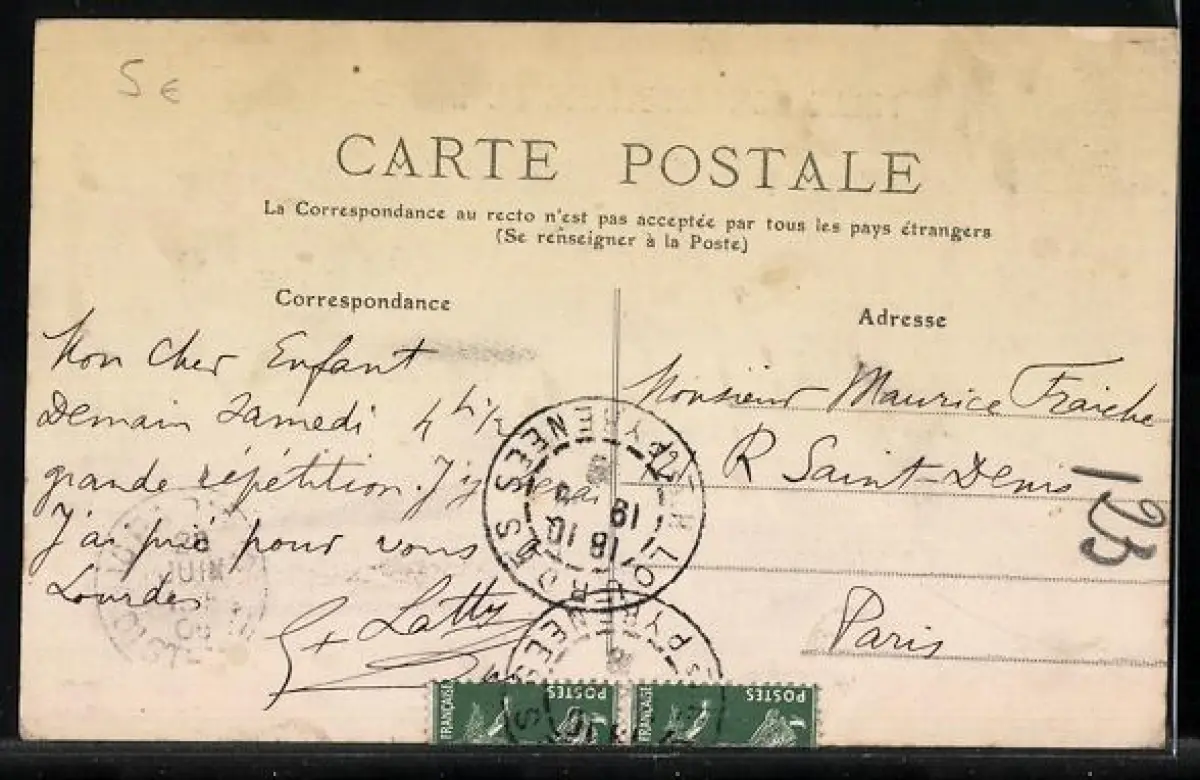 5 €
CARTE POSTALE
La Correspondance au recto n'est pas acceptée par tous les pays étrangers
(Se renseigner à la Poste)
Correspondance
Mon cher Enfant
Demain Samedi 4 h 1/2
grande répétition. J'y serai
J'ai prié pour vous à
Lourdes
Latty
Adresse
Monsieur Maurice Fraiche
R Saint-Denis
123
Paris
PYRENEES
18
PYRENEES
JUIN
FRANÇAISE
POSTES
FRANÇAISE
POSTES